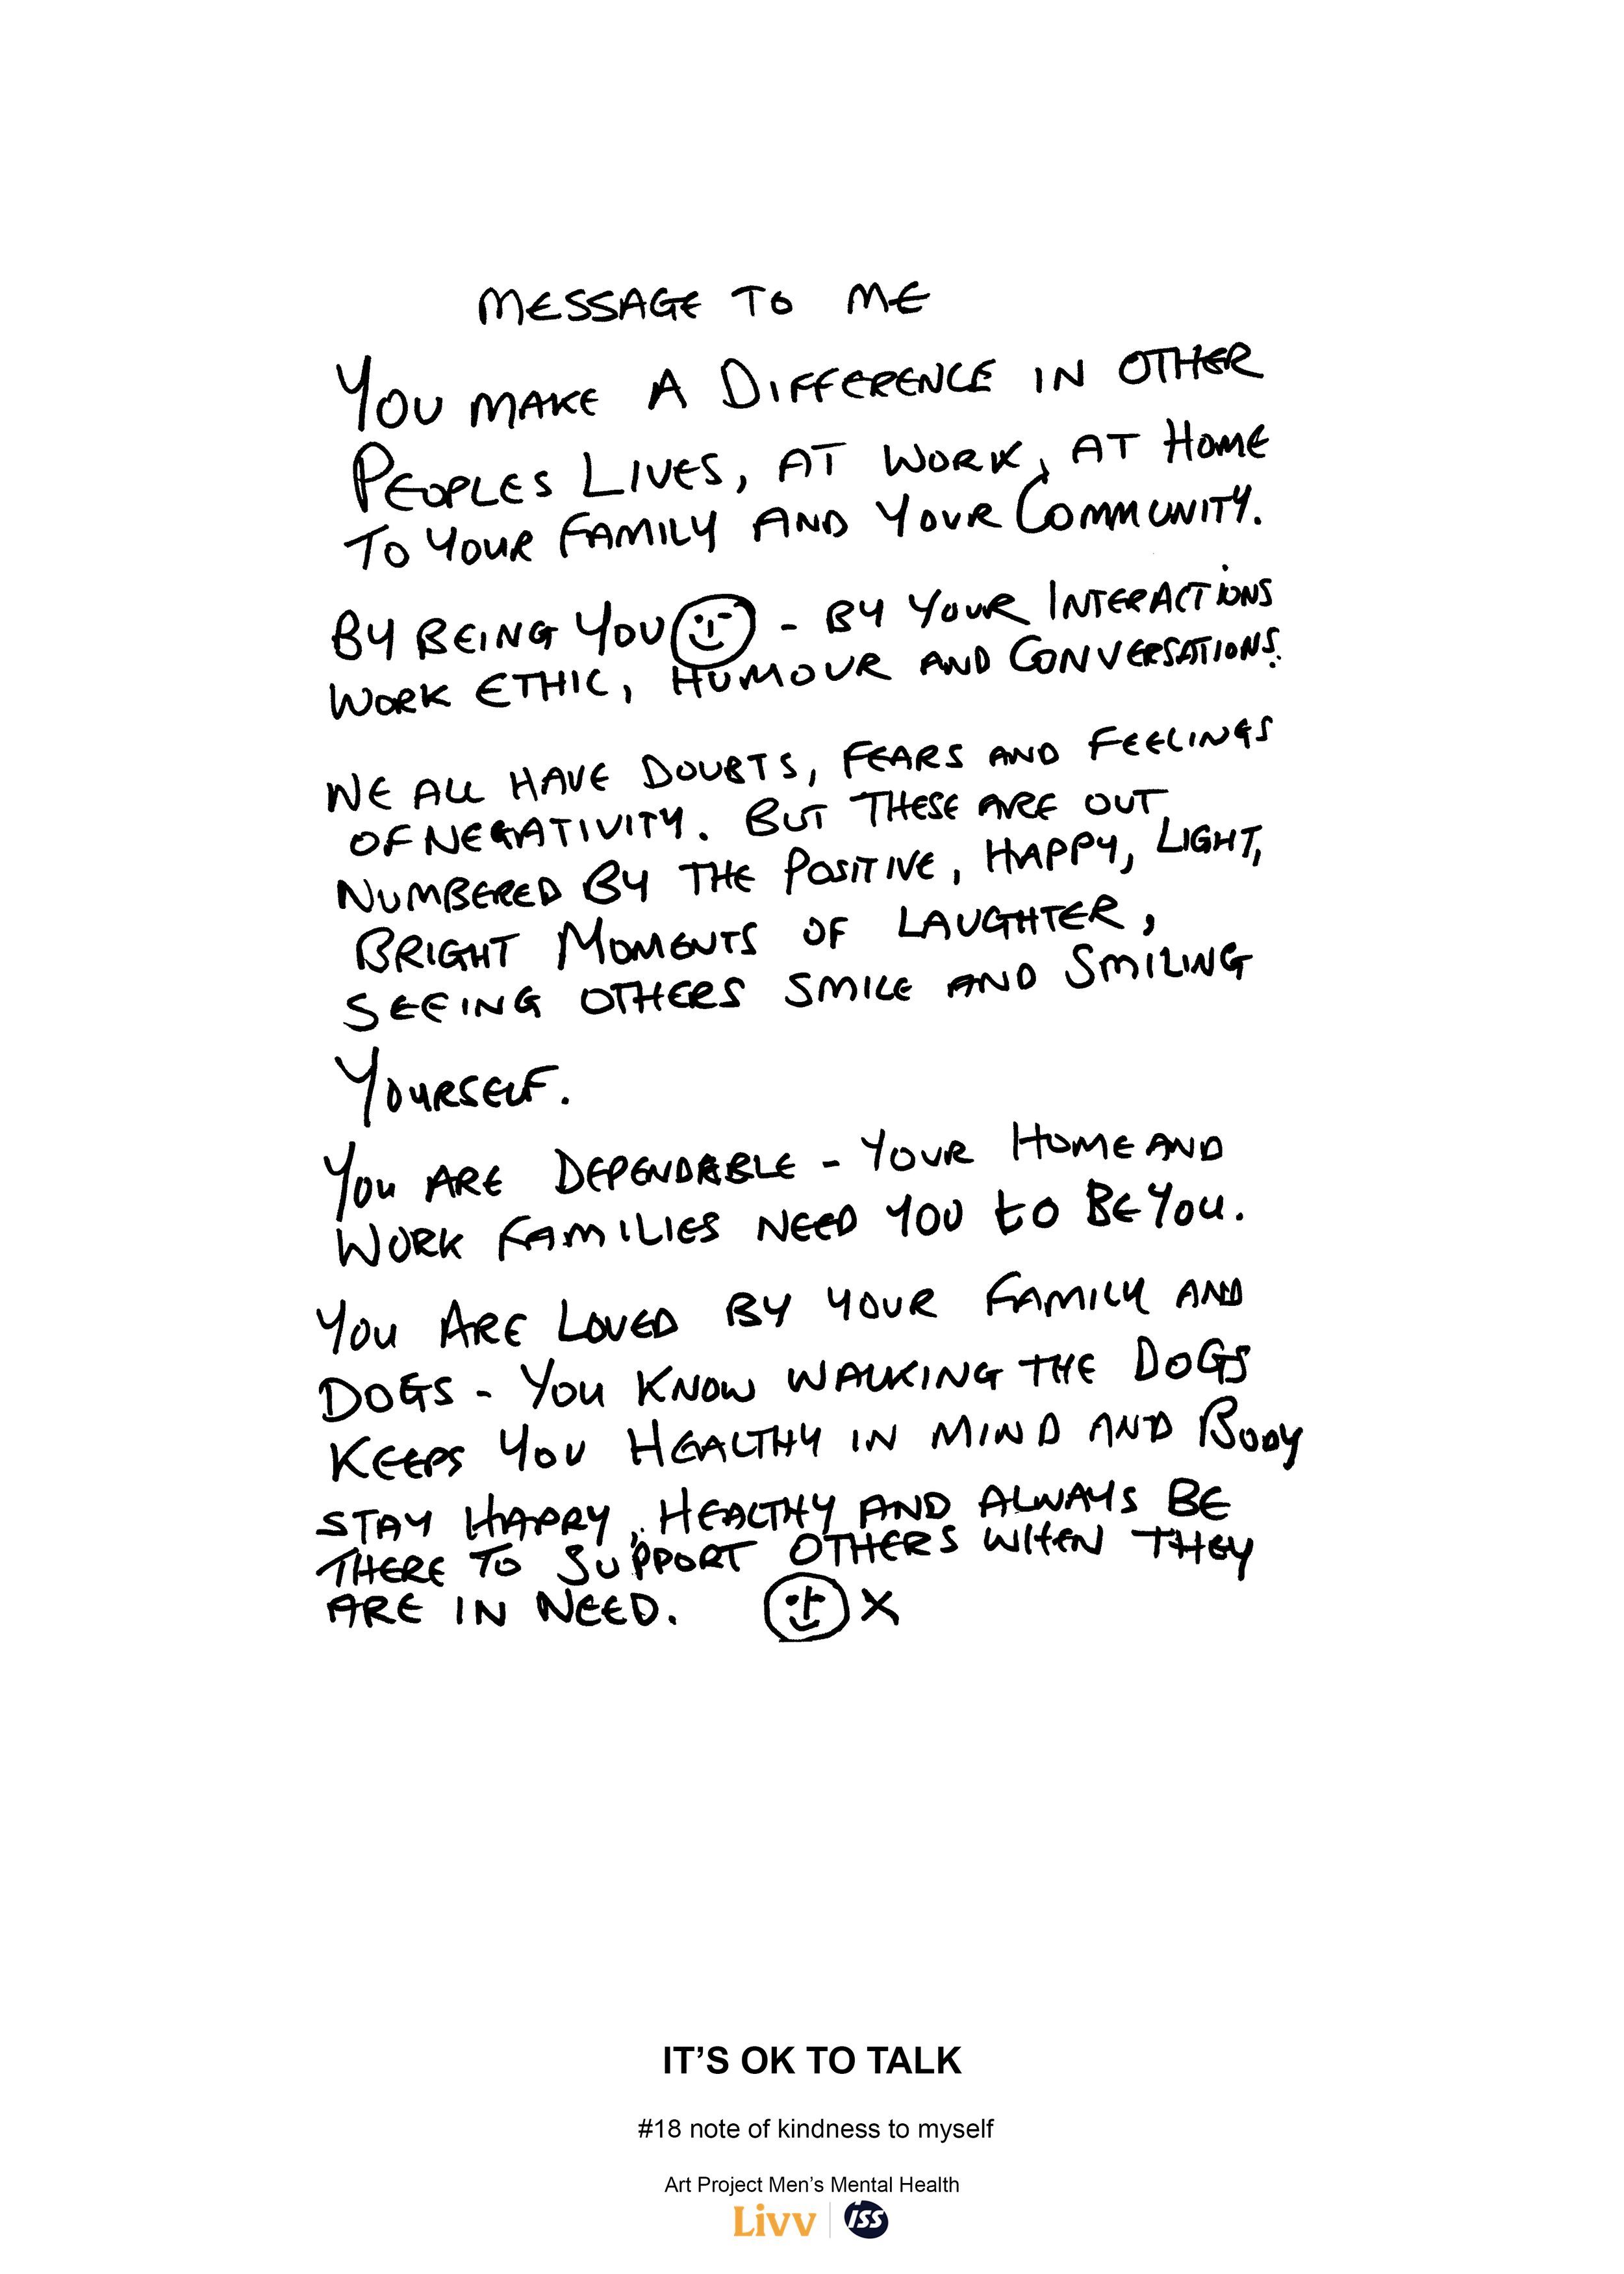 MESSAGE TO ME
YOU MAKE A DIFFERENCE IN OTHER
PEOPLES LIVES, AT WORK, AT HOME
TO YOUR FAMILY AND YOUR COMMUNITY.
BY BEING YOU - BY YOUR INTERACTIONS
WORK ETHIC, HUMOUR AND CONVERSATIONS.
WE ALL HAVE DOUBTS, FEARS AND FEELINGS
OF NEGATIVITY. BUT THESE ARE OUT
NUMBERED BY THE POSITIVE, HAPPY, LIGHT,
BRIGHT MOMENTS OF LAUGHTER,
SEEING OTHERS SMILE AND SMILING
YOURSELF.
YOU ARE DEPENDABLE - YOUR HOME AND
WORK FAMILIES NEED YOU to BE YOU.
YOU ARE LOVED BY YOUR FAMILY AND
DOGS - YOU KNOW WALKING THE DOGS
KEEPS YOU HEALTHY IN MIND AND BODY
STAY HAPPY, HEALTHY AND ALWAYS BE
THERE TO SUPPORT OTHERS WHEN THEY
ARE IN NEED. X
IT'S OK TO TALK
#18 note of kindness to myself
Art Project Men's Mental Health
Livv ISS